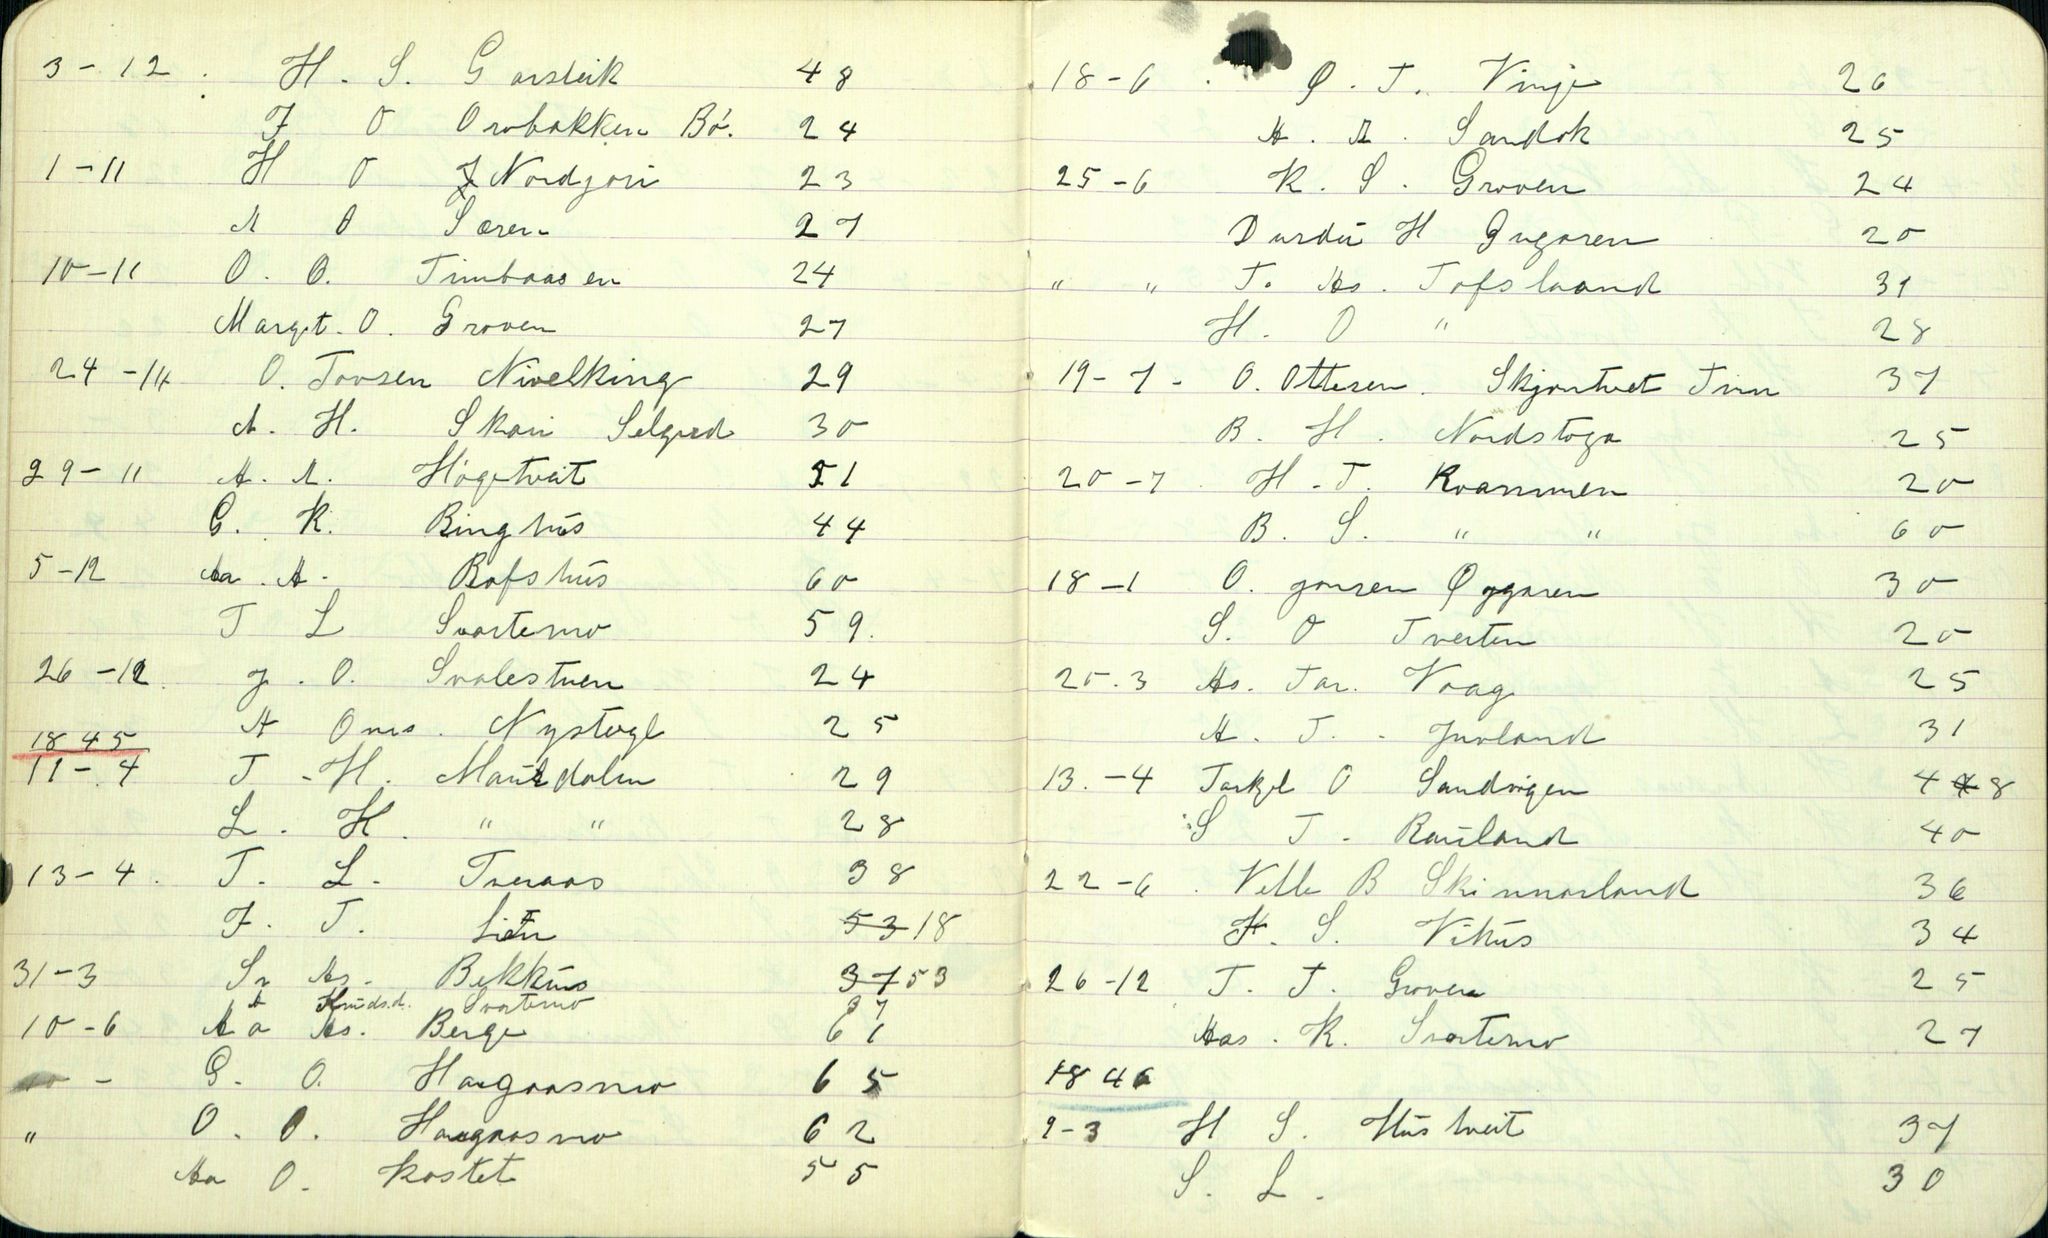 3-12. H. S. Garsleik 48
J O Orobakken Bö. 24
1-11 H O Nordgari 23
A O Særen 27
10-11 O. O. Timbaasen 24
Margit. O. Groven 27
24-11 O. Tovsen Nivelking 29
A. H. Skari Selgerd 30
29-11 A. A. Högetveit 51
G. K. Ringhús 44
5-12 Aa. A. Bofshús 60
T L Svartemo 59.
26-12. J. O. Svalestuen 24
A Ons. Nystogl 25
1845
11-4 T-H. Maurdalen 29
L. H. " " 28
13-4. T. L. Tveraas 38
J. T. Lien 53 18
31-3 Sv As. Bekkús 37 53
A Knúds.d. Svartemo 37
10-6 Aa As. Berge 61
10- G. O. Haugaasmo 65
" O. O. Haugaasmo 62
Aa O. Kostet 55
18-6. Ø. T. Vinje 26
A. A. Sandok 25
25-6 K. S. Groven 24
Durdei H Øygaren 20
" " T. As. Tofsland 31
H. O " 28
19-7- O. Ottesen. Skjontvet Tinn 37
B. H. Nordstoga 25
20-7 H.T. Kvammen 20
B. S. " " 60
18-1 O. Jonsen Øygaren 30
S. O Tveiten 20
20.3 As. Tar. Vaag 25
A. T. - Juvland 31
13.-4 Torkjel O Sandvigen 4 4 8
S T. Rauland 40
22-6. Vetle B Skinnarland 36
H. S. Vihús 34
26-12 T. T. Groven 25
Aas. K. Svartemo 27
1846
9-3 H S. Hústveit 37
S. L. 30